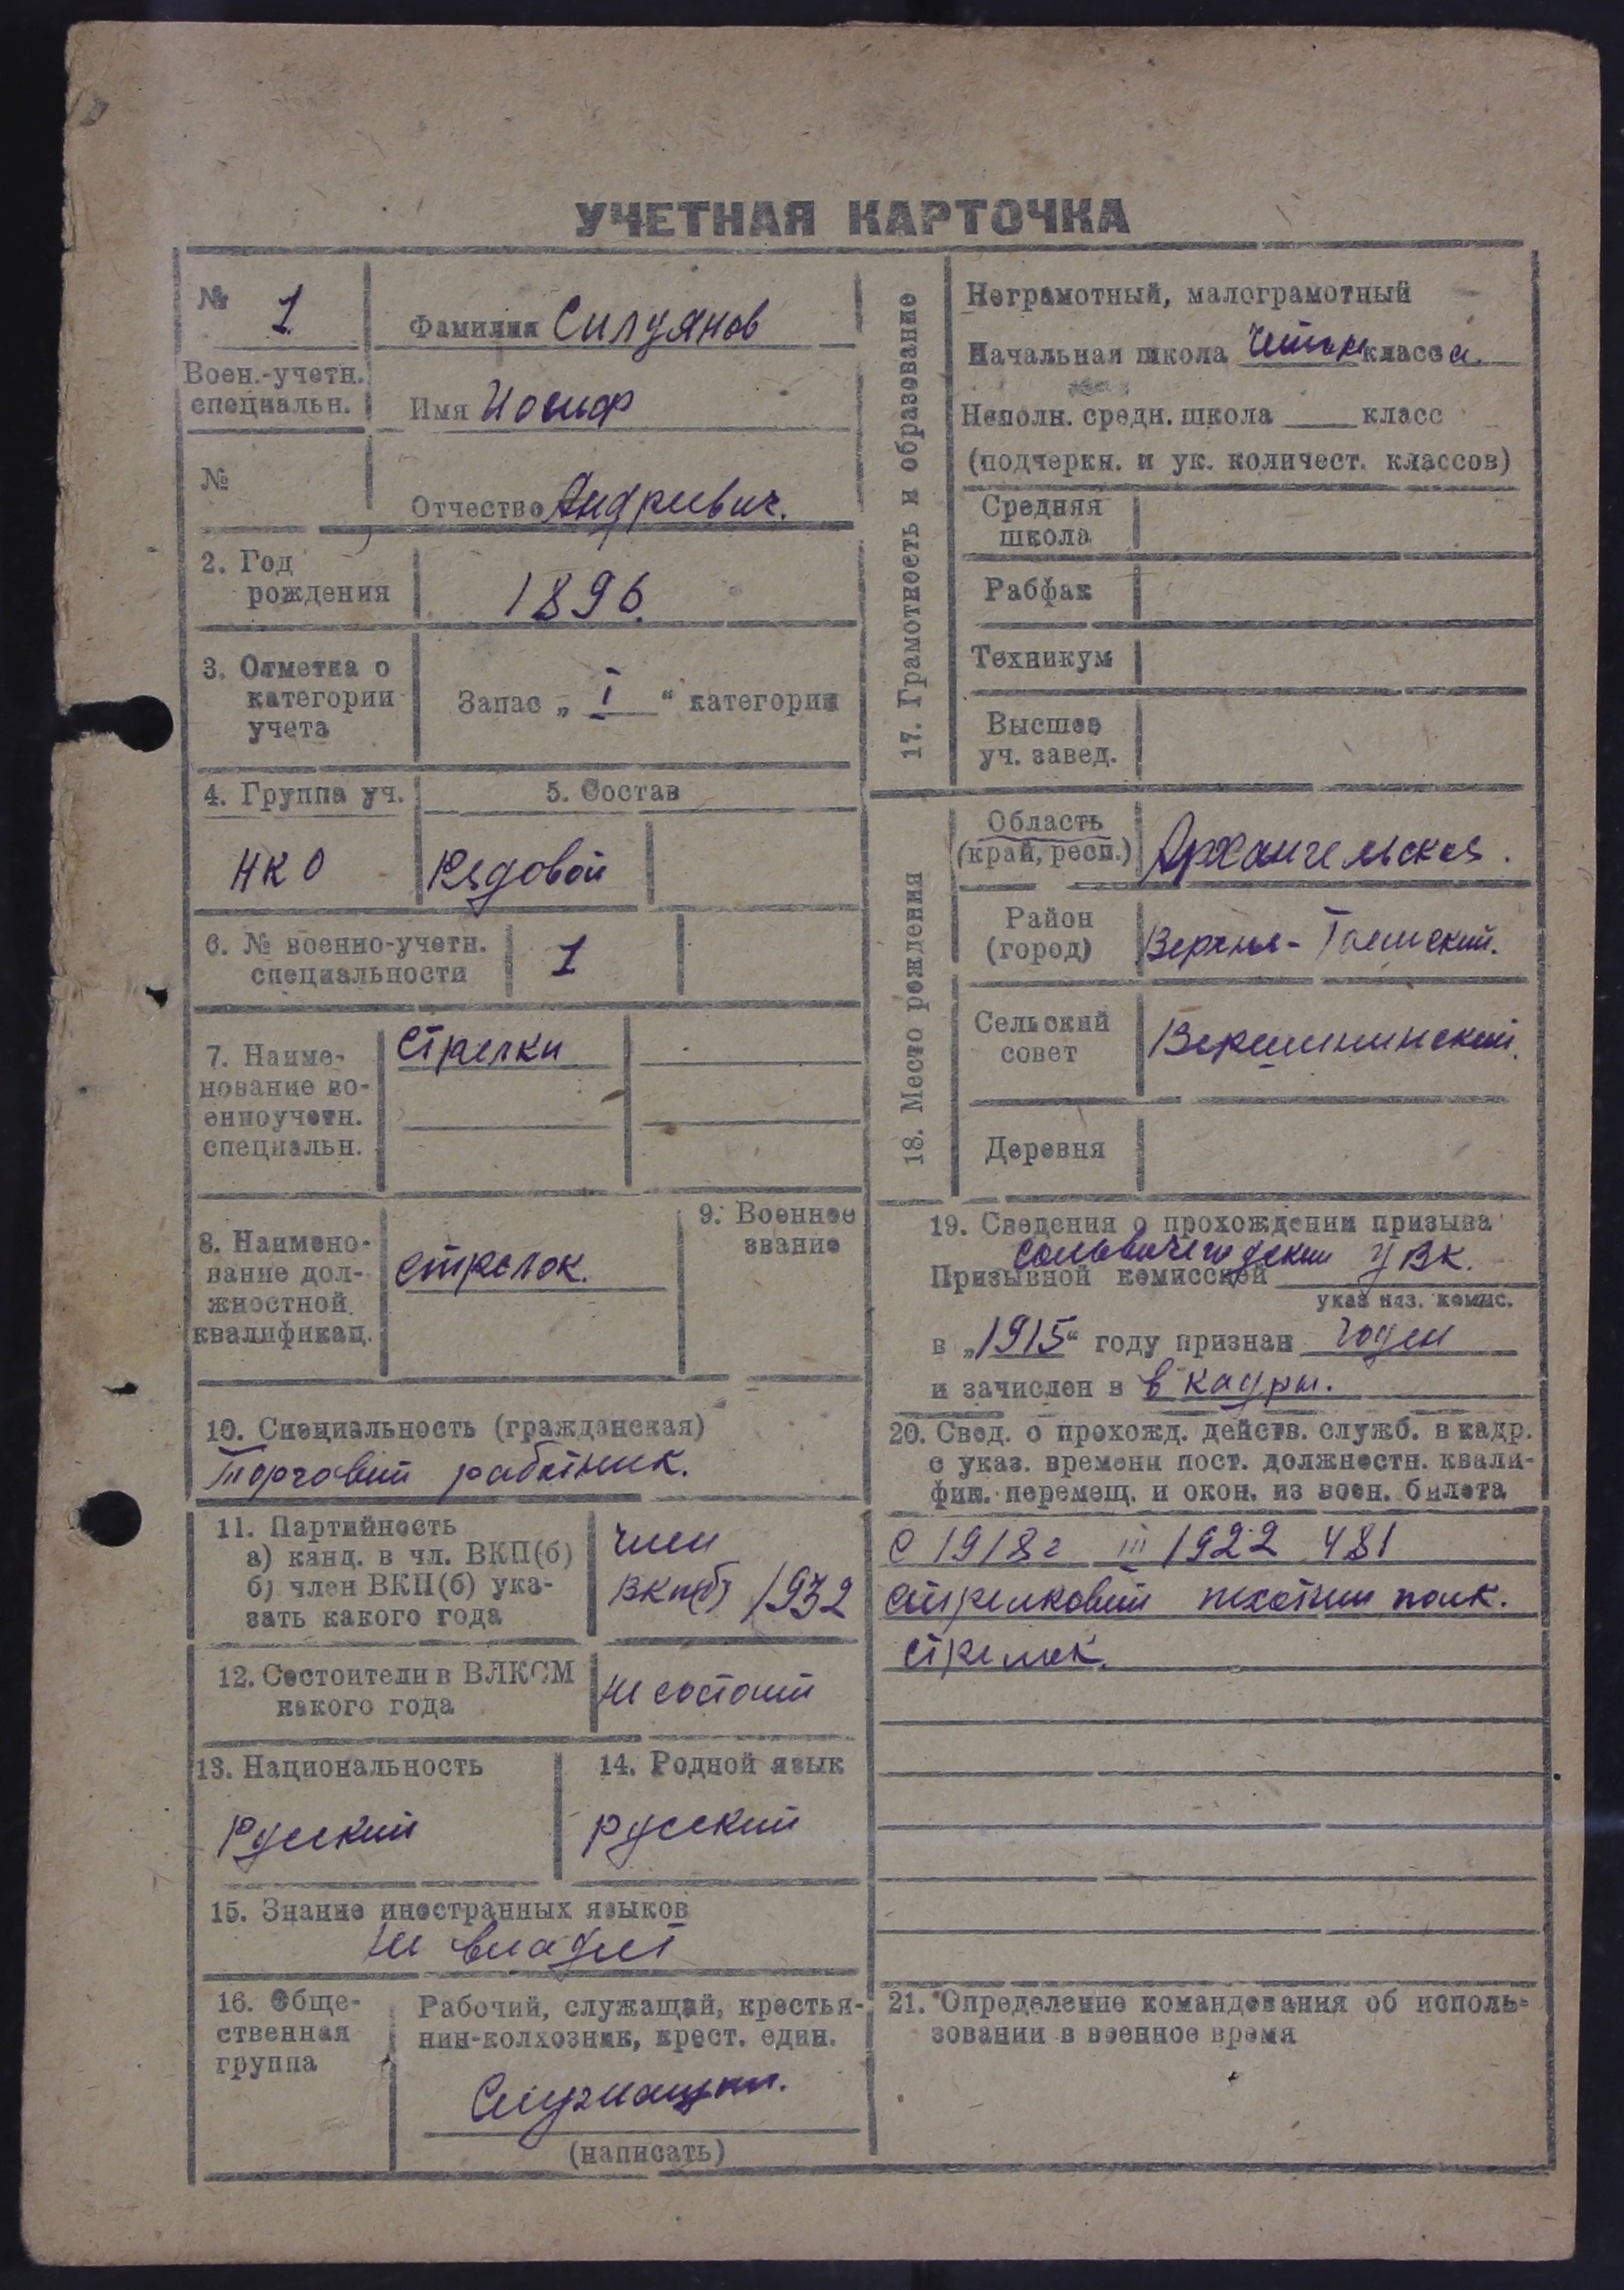 УЧЕТНАЯ КАРТОЧКА
№ 1
Воен.-учетн.
специальн.
№
Фамилия Силуянов
Имя Иосиф
Отчество Андреевич.
2. Год
рождения
1896.
3. Отметка о
категории
учета
Запас „ I “ категории
4. Группа уч.
5. Состав
НКО
Рядовой
6. № военно-учетн.
специальности
1
7. Наиме-
нование во-
енноучетн.
специальн.
Стрелки
8. Наимено-
вание дол-
жностной
квалификац.
стрелок.
9. Военное
звание
10. Специальность (гражданская)
Торговый работник.
11. Партийность
а) канд. в чл. ВКП(б)
б) член ВКП(б) ука-
зать какого года
член
ВКП(б) 1932
12. Состоит ли в ВЛКСМ
какого года
не состоит
13. Национальность
Русский
14. Родной язык
русский
15. Знание иностранных языков
не владеет
16. Обще-
ственная
группа
Рабочий, служащий, крестья-
нин-колхозник, крест. един.
Служащий.
(написать)
17. Грамотность и образование
Неграмотный, малограмотный
Начальная школа класса.
Неполн. средн. школа ____ класс
(подчеркн. и ук. количест. классов)
Средняя
школа
Рабфак
Техникум
Высшее
уч. завед.
18. Место рождения
Область
(край, респ.)
Архангельская.
Район
(город)
Верхне-Тоемский.
Сельский
совет
Вершининский.
Деревня
19. Сведения о прохождении призыва
Сольвычегодским УВК.
Призывной комиссией
указ наз. комис.
в „1915“ году признан годен
и зачислен в в кадры.
20. Свед. о прохожд. действ. служб. в кадр.
с указ. времени пост. должностн. квали-
фик. перемещ. и окон. из воен. билета
С 1918г 1922 481
стрелковый пехотный полк.
стрелок.
21. Определение командования об исполь-
зовании в военное время